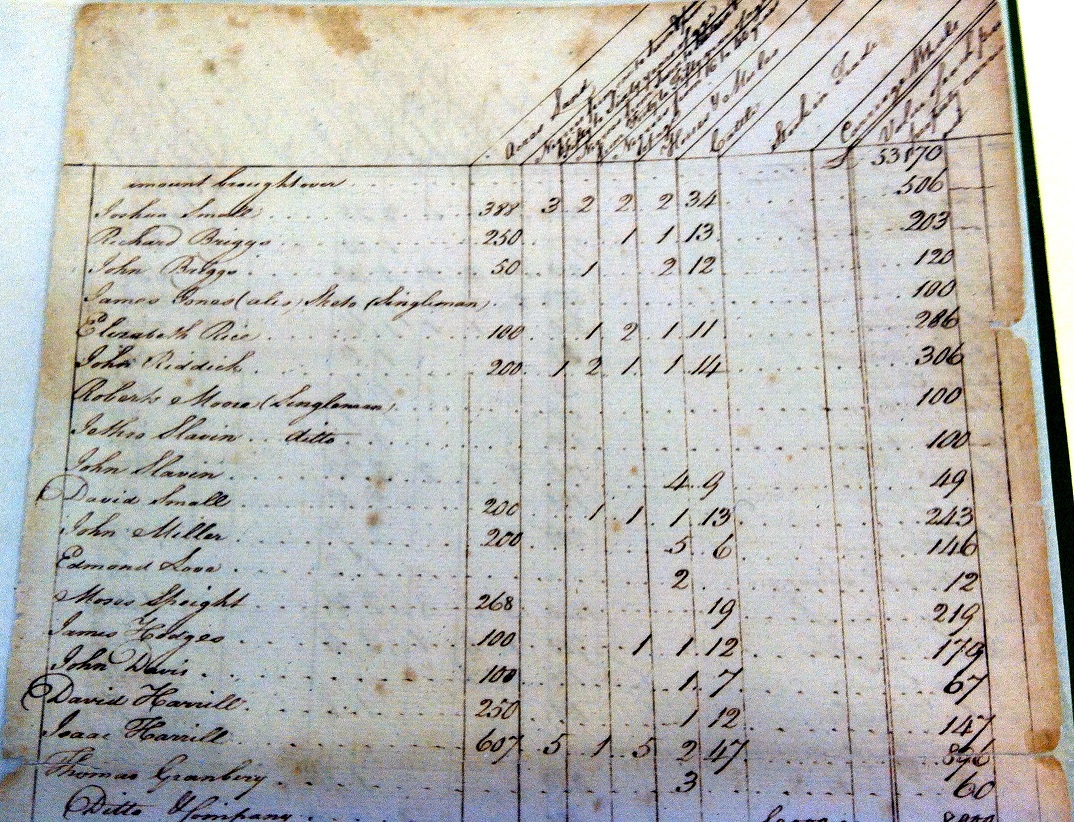 Acres Land
Horses & Mules
Cattle
Stock in Trade
Carriage Wheels
amount brought over 53170
Joshua Small 388 3 2 2 2 34 506
Richard Briggs 250 1 1 13 203
John Briggs 50 1 2 12 120
James Jones (alias) Sketo (Singleman) 100
Elizabeth Rice 100 1 2 1 11 286
John Riddick 200 1 2 1 1 14 306
Roberts Moore (Singleman) 100
Jethro Slavin ditto 100
John Slavin 4 9 49
David Small 200 1 1 1 13 243
John Miller 200 5 6 146
Edmond Love 2 12
Moses Speight 268 19 219
James Hodges 100 1 1 12
John Davis 100 1 7 67
David Harrill 250 1 12 147
Isaac Harrill 607 5 1 5 2 47
Thomas Granbery 3 60
Ditto & Company